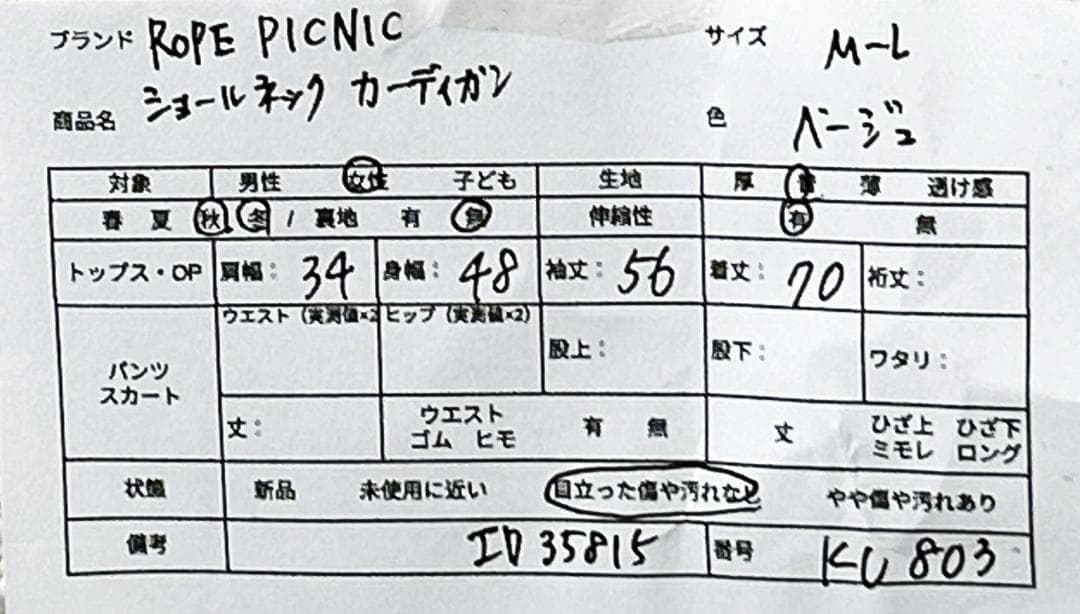 ブランド ROPE PICNIC サイズ M-L
商品名 ショールネック カーディガン 色 ベージュ
対象 男性 女性 子ども 生地 厚 普 薄 透け感
春 夏 秋 冬 / 裏地 有 無 伸縮性 有 無
トップス・OP 肩幅: 34 身幅: 48 袖丈: 56 着丈: 70 裄丈:
パンツ スカート ウエスト (実測値×2 ヒップ (実測値×2) 股上: 股下: ワタリ:
丈: ウエスト ゴム ヒモ 有 無 丈 ひざ上 ひざ下 ミモレ ロング
状態 新品 未使用に近い 目立った傷や汚れなし やや傷や汚れあり
備考 ID 35815 番号 KU 803